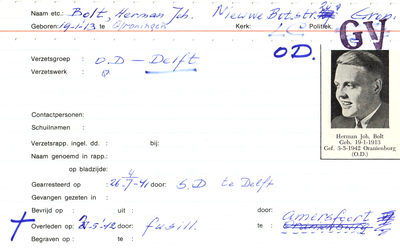 Naam etc.: Bolt, Herman Joh. Nieuwe Botstr. Gron.
Geboren: 19-1-'13 te Groningen Kerk: Politiek:
GV
O.D.
Verzetsgroep : O.D — Delft
Verzetswerk :
Contactpersonen:
Schuilnamen :
Verzetsrapp. ingel. dd. : bij:
Naam genoemd in rapp.:
op bladzijde:
Herman Joh. Bolt
Geb. 19-1-1913
Gef. 3-5-1942 Oranienburg
(O.D.)
Gearresteerd op : 26-7-41 door: S.D te Delft
Gevangen gezeten in :
Bevrijd op : uit : door: Amersfoort
Overleden op: -5-'42 door: fusill. te: Oranienburg
Begraven op : te :